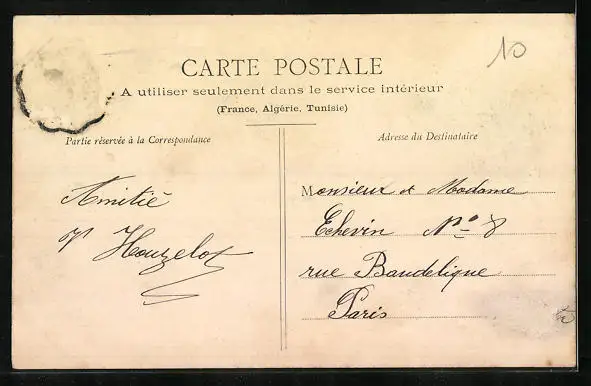 10
CARTE POSTALE
A utiliser seulement dans le service intérieur
(France, Algérie, Tunisie)
Partie réservée à la Correspondance
Adresse du Destinataire
Amitié
Houzelot
Monsieur et Madame
Echevin Nº 8
rue Baudelique
Paris